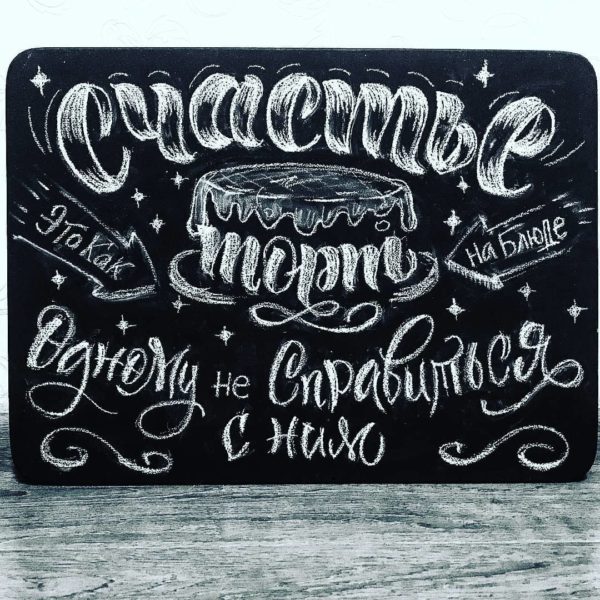 Счастье
это как
торт
на блюде
Одному не Справиться
с ним